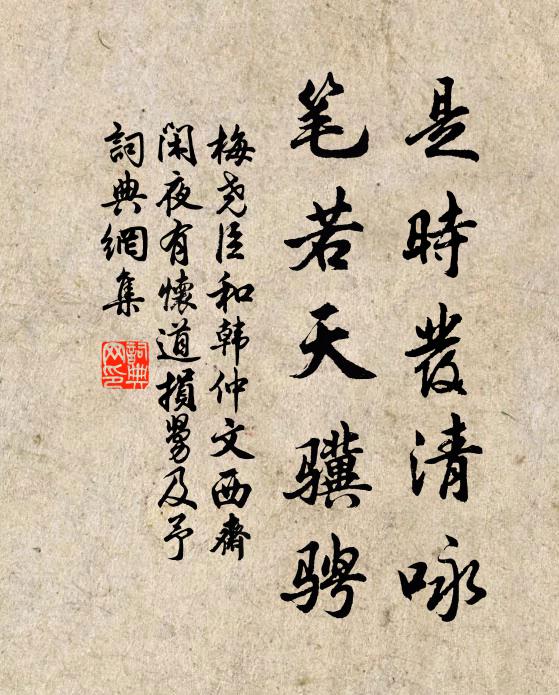 是時發清咏
笔若天骥骋
梅尧臣和韩仲文西齋
閑夜有懷道損勞及予
詞典網集
詞典網印